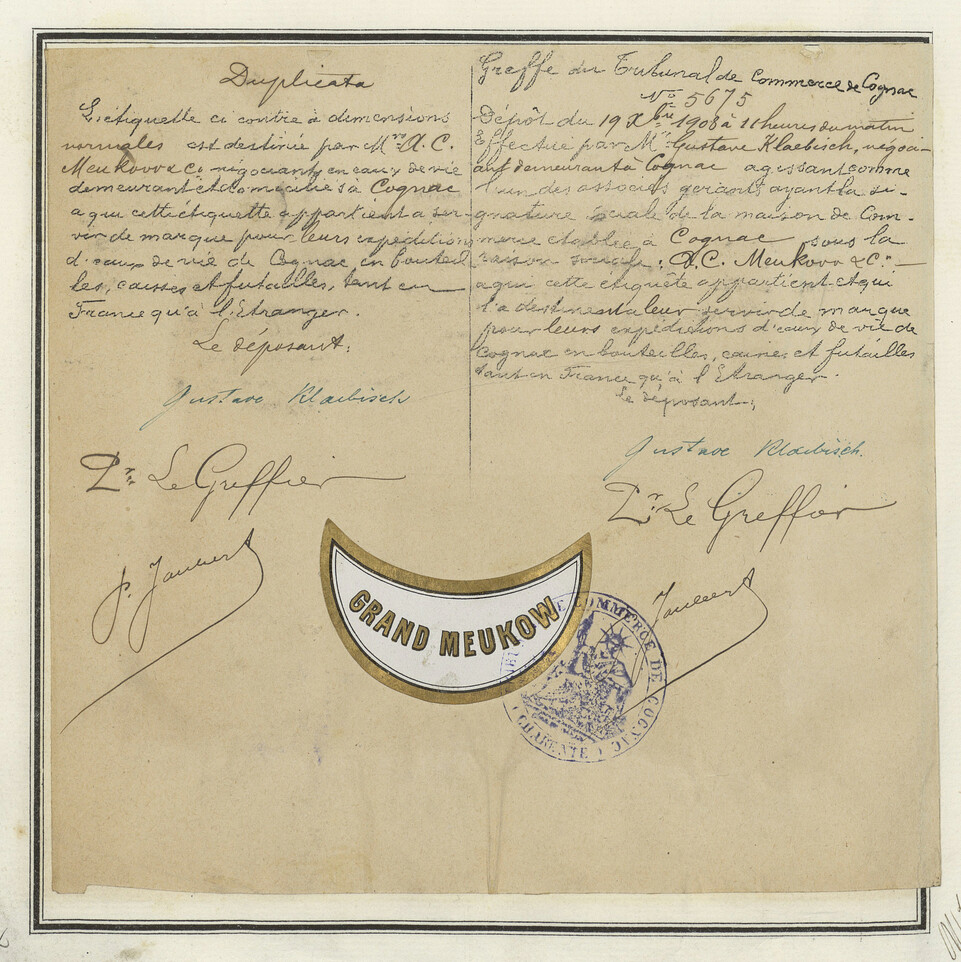 Duplicata
L'étiquette ci contre à dimensions
normales est destinée par Mrs A. C.
Meukow & Co négociants en eaux de vie
demeurant et domiciliés à Cognac
a qui cette étiquette appartient a ser-
vir de marque pour leurs expéditions
d'eaux de vie de Cognac en bouteil
les, caisses et futailles, tant en
France qu'à l'Etranger.
Le déposant:
Gustave Klaebisch
Pr Le Greffier
P. Jaubert
Greffe du Tribunal de Commerce de Cognac
No 5675
Dépôt du 19 Xbre 1908 à 11 heures du matin
Effectué par Mr Gustave Klaebisch, négoci-
ant demeurant à Cognac agissant comme
l'un des associés gérants ayant la si-
gnature sociale de la maison de Com-
merce établie à Cognac sous la
raison sociale: A.C. Meukow & Co. —
a qui cette étiquête appartient et qui
l'a destine a leur servir de marque
pour leurs expéditions d'eaux de vie de
Cognac en bouteilles, caisses et futailles
tant en France qu'à l'Etranger.
Le déposant:
Gustave Klaebisch.
Pr Le Greffier
Jaubert
GRAND MEUKOW
COMMERCE DE COGNAC
(CHARENTE)